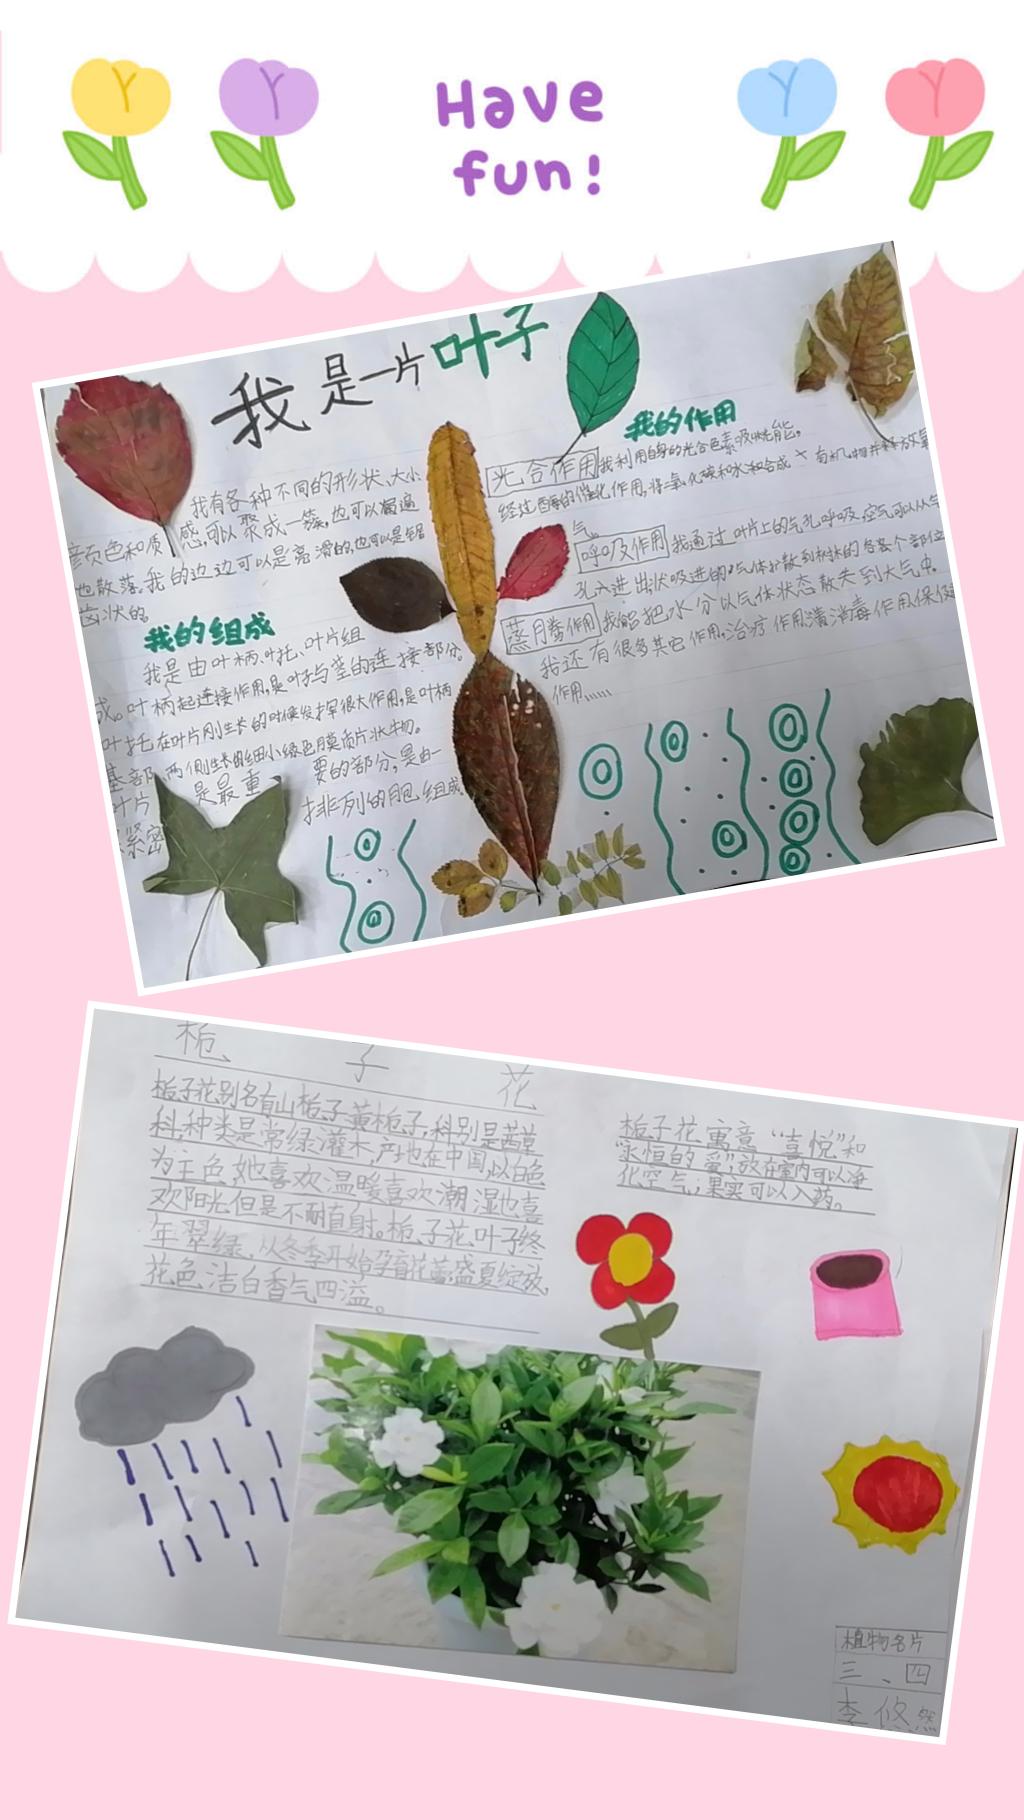 Have
fun!
我是一片叶子
我有各种不同的形状、大小
颜色和质感,可以聚成一簇,也可以
也散落。我的边边可以是亮滑的,也可以是锯
齿状的
我的组成
我是由叶柄、叶托、叶片组
成。叶柄起连接作用,是叶子与茎的连接部分。
叶托在叶片刚生长的时候发挥很大作用,是叶柄
基部、两侧生长的细小绿色膜质片状物。
叶片是最重要的部分,是由一
紧密排列的胞组成
我的作用
光合作用 我利用自身的光合色素吸光能。
经过酶的催化作用,将二氧化碳和水和合成
气。
呼吸作用 我通过叶片上的气孔呼吸,空气可以从气
孔入进出状吸进的气体扩散到
蒸腾作用 我能把水分以气体状态散失到大气中。
我还有很多其它作用,治疗作用 消毒作用
作用……
栀子花
栀子花别名有山栀子,黄栀子,科别是茜草
科,种类是常绿灌木,产地在中国,以白色
为主色,她喜欢温暖喜欢潮湿也喜
欢阳光但是不耐直射。栀子花叶子终
年翠绿,从冬季开始孕育花蕾盛夏绽放,
花色洁白香气四溢。
栀子花寓意“喜悦”和
永恒的爱”,放在室内可以净
化空气;果实可以入药。
植物名片
三、四
李悠然